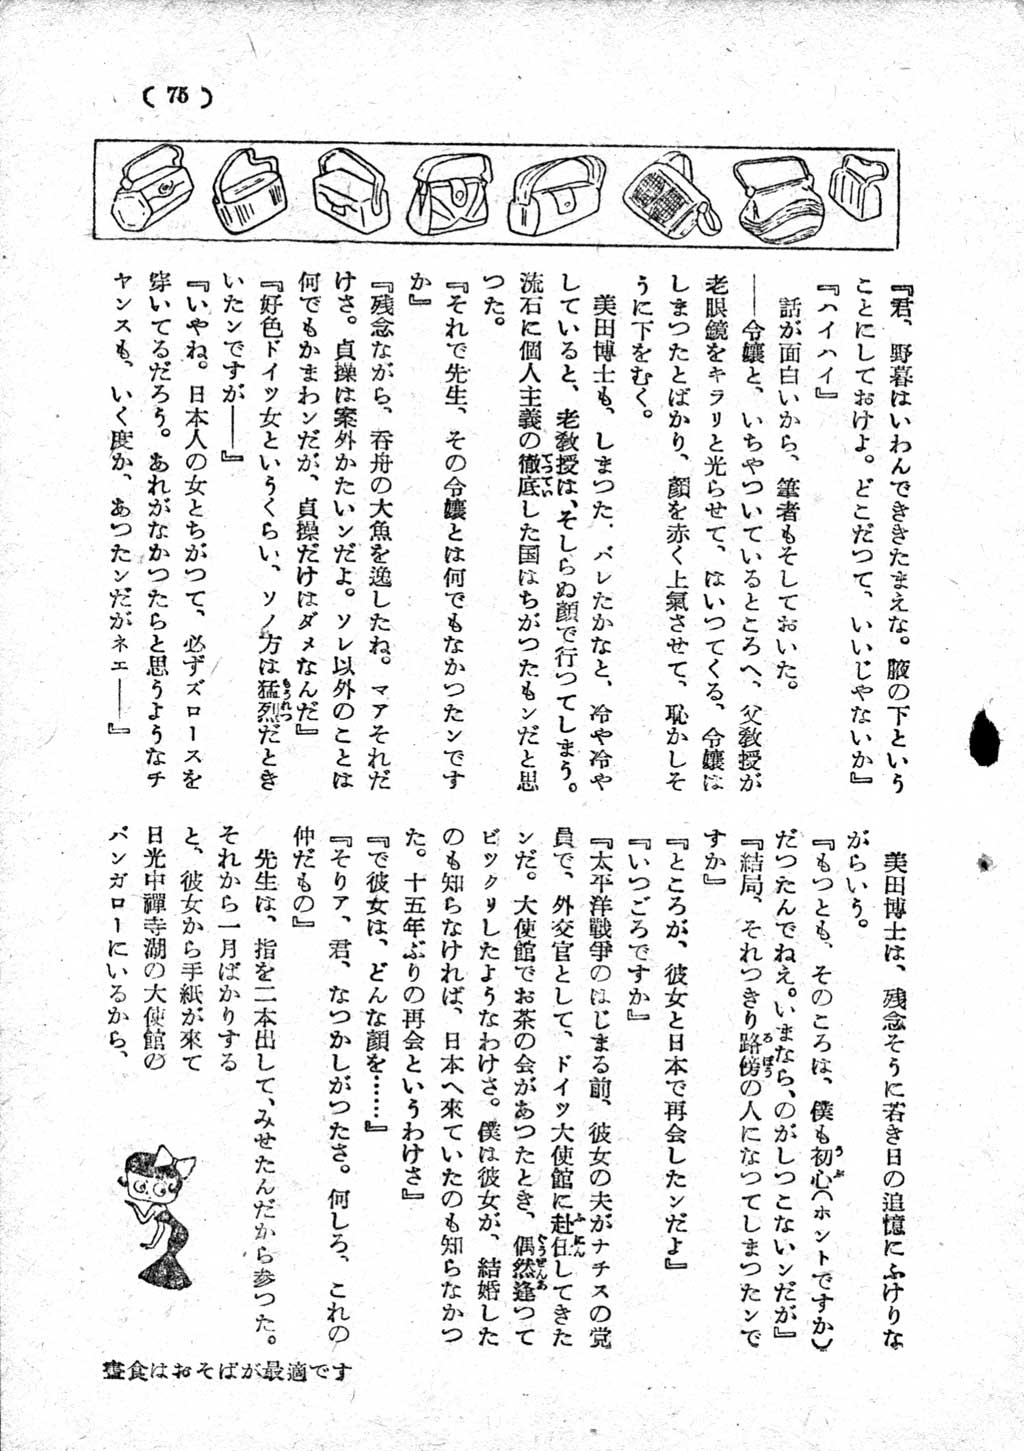 ( 75 )
『君、野暮はいわんでききたまえな。腋の下という
ことにしておけよ。どこだつて、いいじやないか』
『ハイハイ』
話が面白いから、筆者もそしておいた。
――令嬢と、いちやついているところへ、父教授が
老眼鏡をキラリと光らせて、はいつてくる、令嬢は
しまつたとばかり、顔を赤く上氣させて、恥かしそ
うに下をむく。
美田博士も、しまつた、バレたかなと、冷や冷や
していると、老教授は、そしらぬ顔で行つてしまう。
流石に個人主義の徹底した国はちがつたもンだと思
つた。
『それで先生、その令嬢とは何でもなかつたンです
か』
『残念ながら、呑舟の大魚を逸したね。マアそれだ
けさ。貞操は案外かたいンだよ。ソレ以外のことは
何でもかまわンだが、貞操だけはダメなんだ』
『好色ドイツ女というくらい、ソノ方は猛烈だとき
いたンですが――』
『いやね。日本人の女とちがつて、必ずズロースを
穿いてるだろう。あれがなかつたらと思うようなチ
ヤンスも、いく度か、あつたンだがネエ――』
美田博士は、残念そうに若き日の追憶にふけりな
がらいう。
『もつとも、そのころは、僕も初心(ホントですか)
だつたんでねえ。いまなら、のがしつこないンだが』
『結局、それつきり路傍の人になつてしまつたンで
すか』
『ところが、彼女と日本で再会したンだよ』
『いつごろですか』
『太平洋戰爭のはじまる前、彼女の夫がナチスの党
員で、外交官として、ドイツ大使館に赴任してきた
ンだ。大使館でお茶の会があつたとき、偶然逢つて
ビツクリしたようなわけさ。僕は彼女が、結婚した
のも知らなければ、日本へ来ていたのも知らなかつ
た。十五年ぶりの再会というわけさ』
『で彼女は、どんな顔を……』
『そりア、君、なつかしがつたさ。何しろ、これの
仲だもの』
先生は、指を二本出して、みせたんだから参つた。
それから一月ばかりする
と、彼女から手紙が來て
日光中禪寺湖の大使館の
バンガローにいるから、
晝食はおそばが最適です